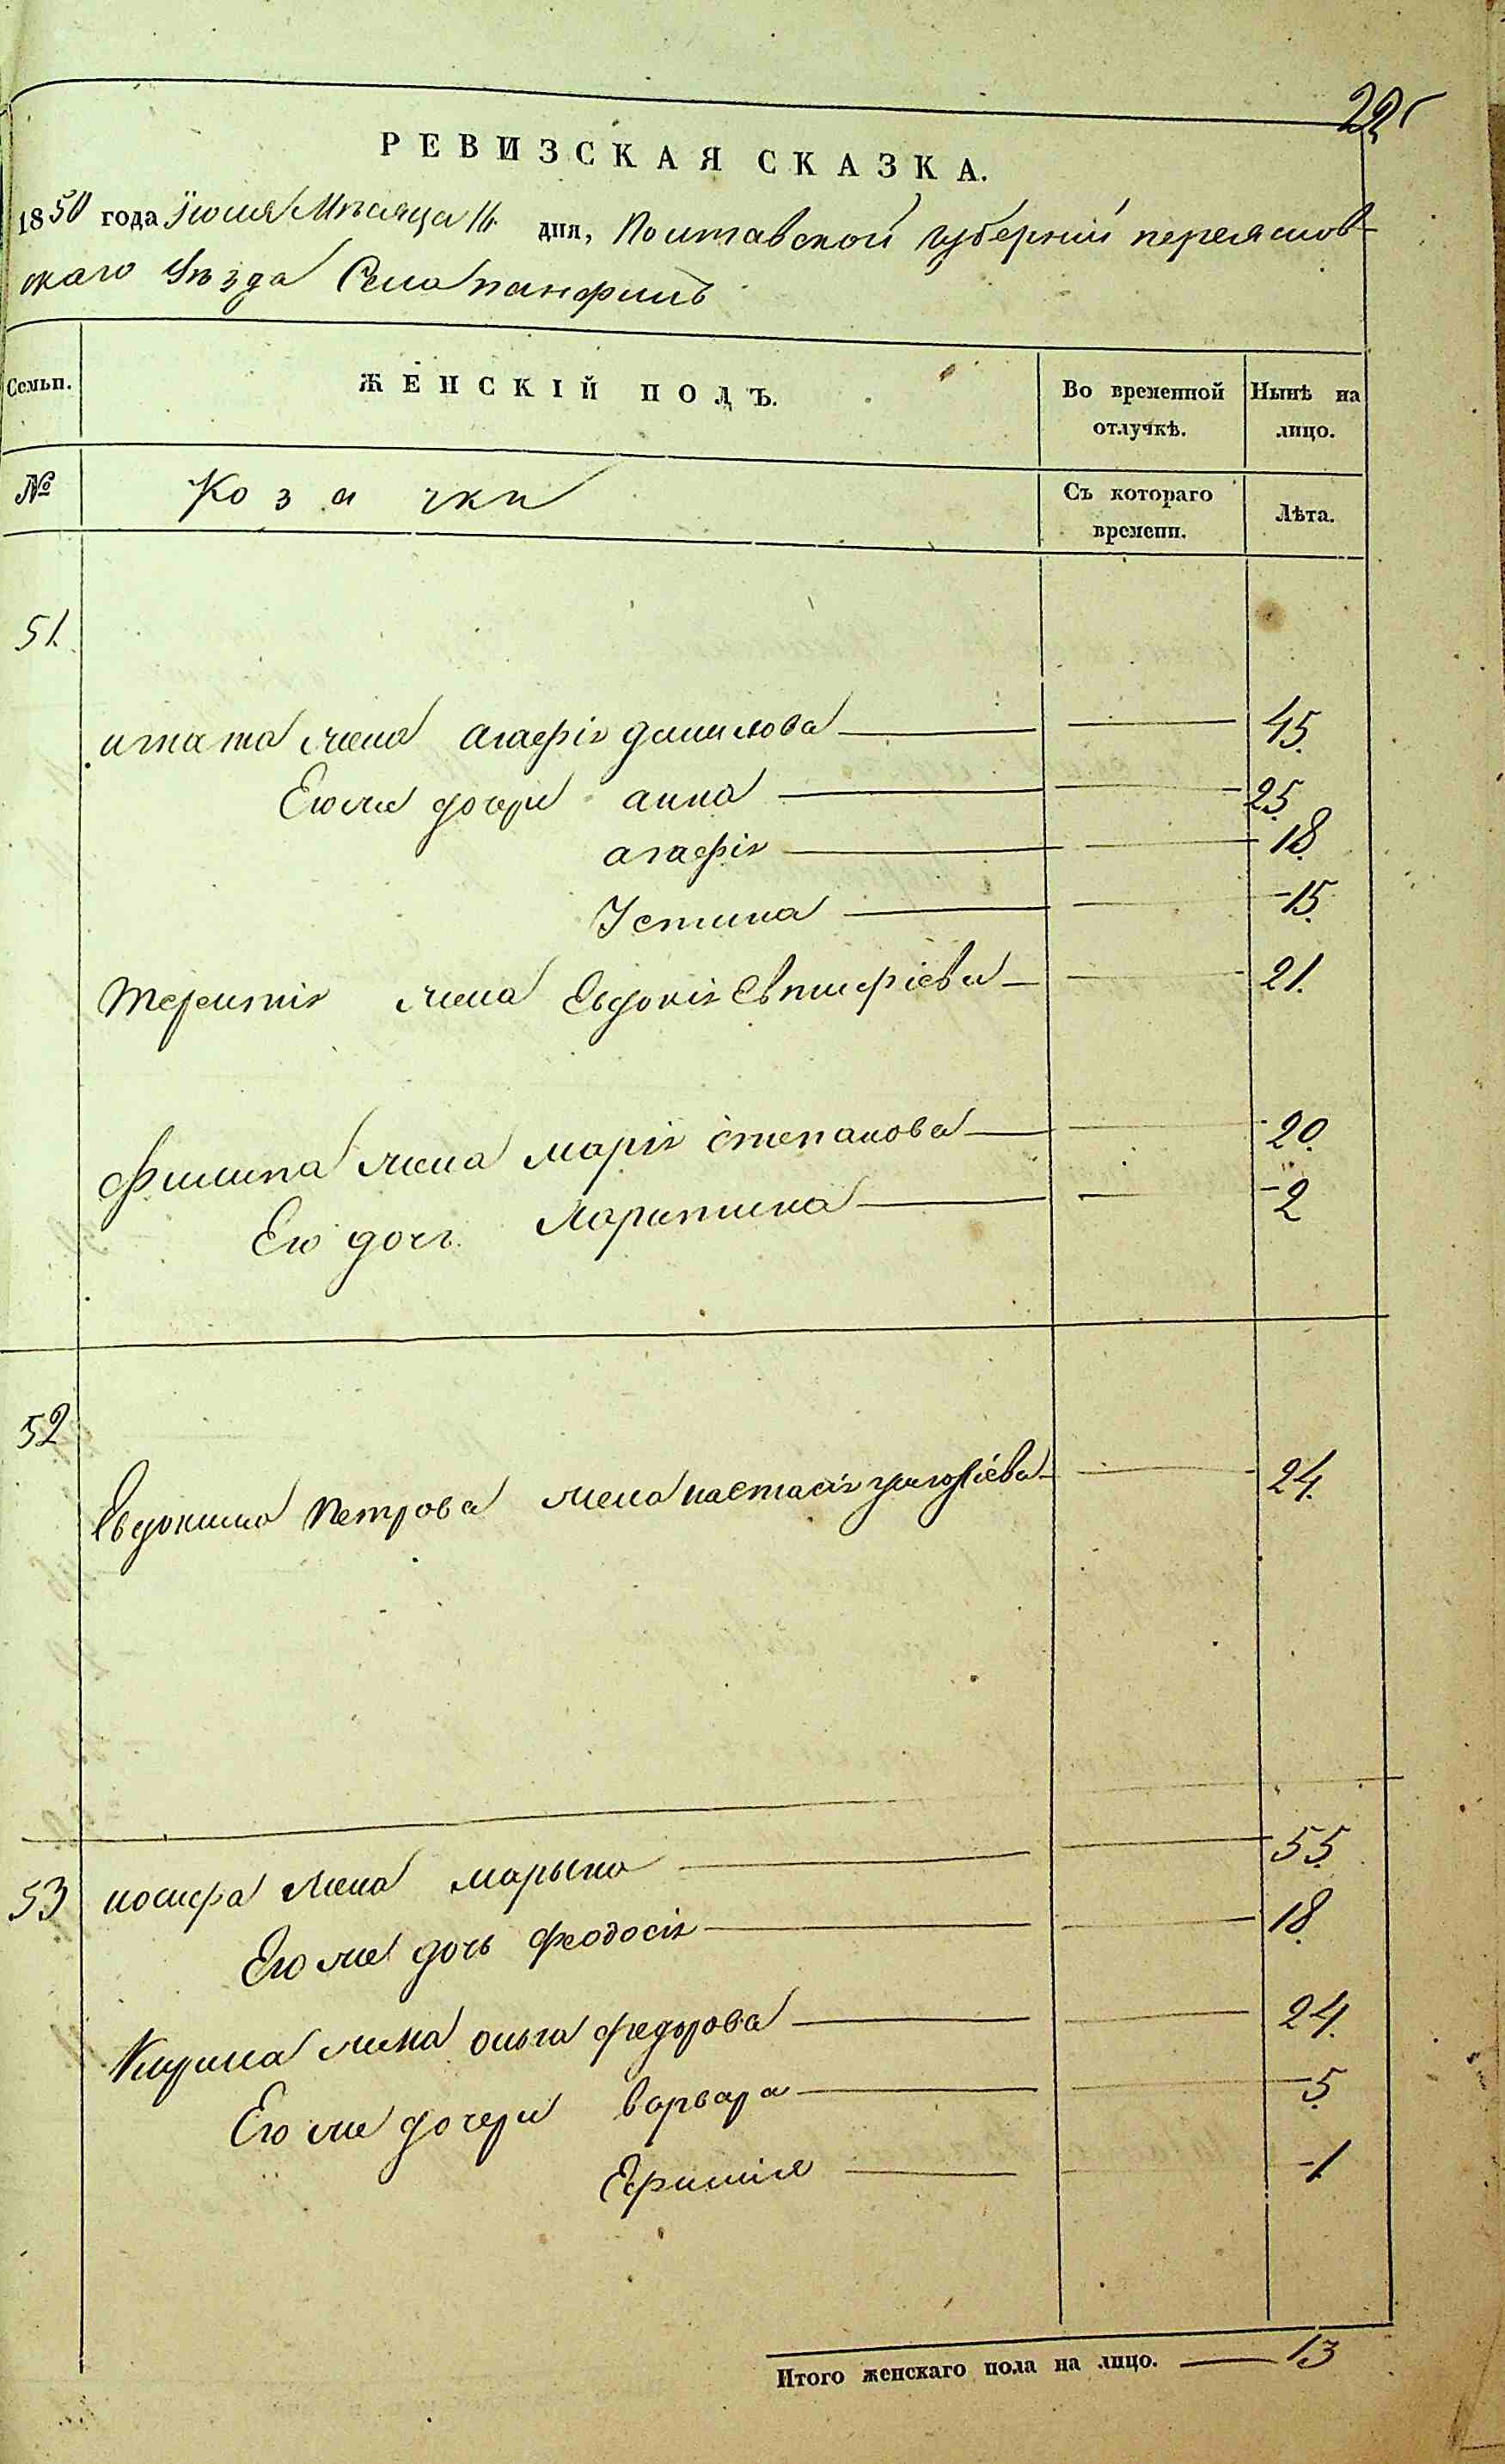 22
РЕВИЗСКАЯ СКАЗКА.
1850 года Июля Мѣсяца 16 дня, Полтавской губерніи переяслов-
скаго уѣзда Села панфилъ
Семьи. ЖЕНСКІЙ ПОЛЪ. Во временной отлучкѣ. Нынѣ на лицо.
№ Козачки Съ котораго времени. Лѣта.
51.
жена агафія данилова 45.
Его же дочери анна 25.
агафія 18.
Устина 15.
терентія жена Евдокія 21.
Филипа жена марія степанова 20.
Его дочь 2
52
Евдокима Петрова жена настасія григоріева 24.
53 иосифа жена марына 55.
Его же дочь феодосія 18.
Кирила жена ольга федорова 24.
Его же дочери варвара 5.
Ефимія 1
Итого женскаго пола на лицо. 13